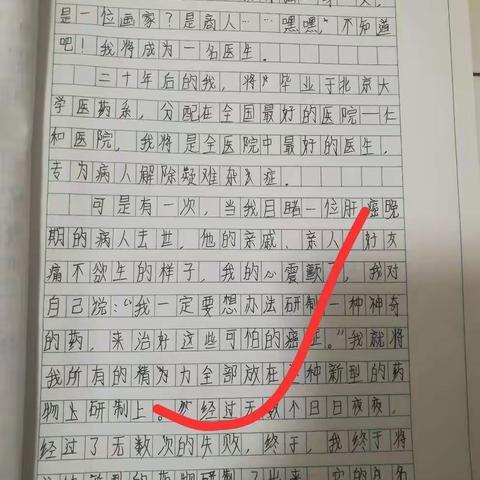 是一位画家？是商人……嘿嘿，不知道
吧！我将成为一名医生。
二十年后的我，将毕业于北京大
学医药系，分配在全国最好的医院一仁
和医院，我将是全医院中最好的医生，
专为病人解除疑难杂症。
可是有一次，当我目睹一位肝癌晚
期的病人去世，他的亲戚、亲人、好友
痛不欲生的样子，我的心震颤了，我对
自己说：“我一定要想办法研制一种神奇
的药，来治好这些可怕的癌症。”我就将
我所有的精力全部放在这种新型的药
物上研制上。经过无数个日日夜夜，
经过了无数次的失败，终于，我终于将